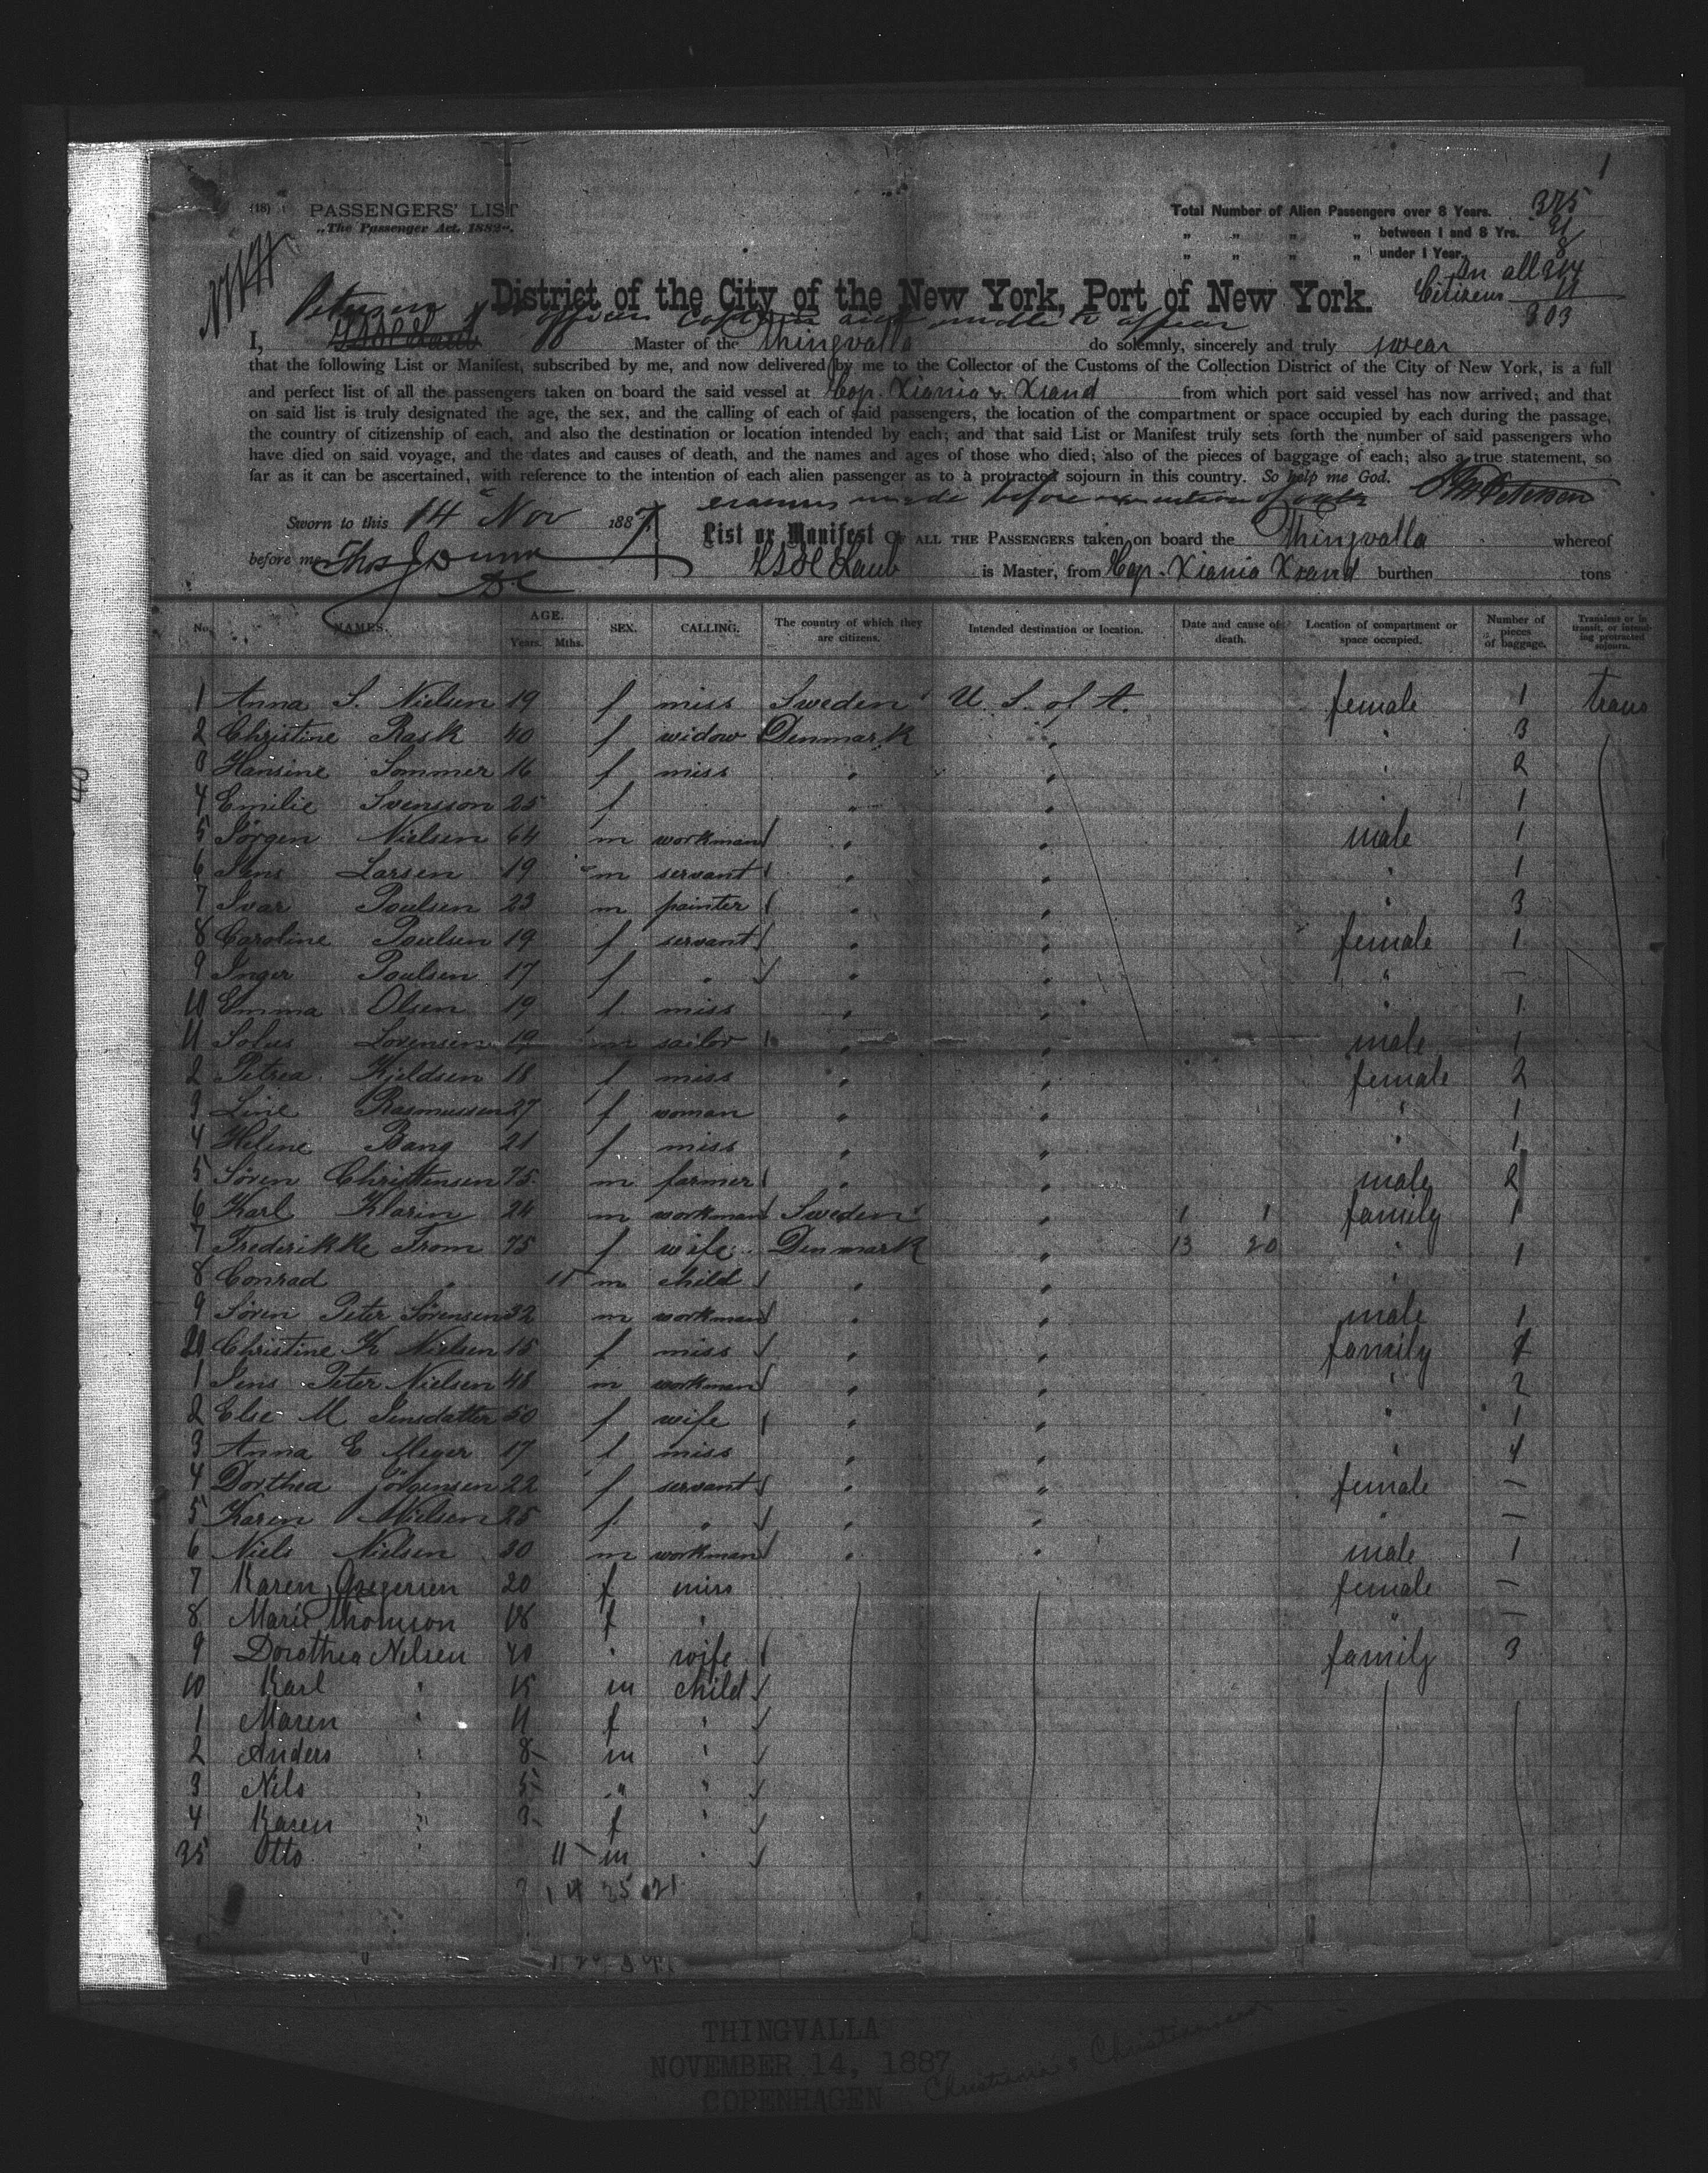 1
(18) PASSENGERS' LIST
„The Passenger Act, 1882".
Total Number of Alien Passengers over 8 Years. 375
„ „ „ „ between 1 and 8 Yrs. 31
„ „ „ „ under 1 Year. 8
In all 314
Citizens 11
303
District of the City of the New York, Port of New York.
Petersen
I, Master of the Thingvalla do solemnly, sincerely and truly swear
that the following List or Manifest, subscribed by me, and now delivered by me to the Collector of the Customs of the Collection District of the City of New York, is a full
and perfect list of all the passengers taken on board the said vessel at Cop. Xiania & Xsand from which port said vessel has now arrived; and that
on said list is truly designated the age, the sex, and the calling of each of said passengers, the location of the compartment or space occupied by each during the passage,
the country of citizenship of each, and also the destination or location intended by each; and that said List or Manifest truly sets forth the number of said passengers who
have died on said voyage, and the dates and causes of death, and the names and ages of those who died; also of the pieces of baggage of each; also a true statement, so
far as it can be ascertained, with reference to the intention of each alien passenger as to a protracted sojourn in this country. So help me God. Petersen
erasures made before execution of oath
Sworn to this 14 Nov 1887
before me Thos J Dunn
DC
List or Manifest OF ALL THE PASSENGERS taken on board the Thingvalla whereof
Laub is Master, from Cop. Xiania Xsand burthen tons
No. NAMES. AGE. Years. Mths. SEX. CALLING. The country of which they are citizens. Intended destination or location. Date and cause of death. Location of compartment or space occupied. Number of pieces of baggage. Transient or in transit, or intending protracted sojourn.
1 Anna S. Nielsen 19 f miss Sweden U. S. of A. female 1 trans
2 Christine Rask 40 f widow Denmark " " 3
3 Hansine Sommer 16 f miss " " " 2
4 Emilie Svensson 25 f " " " " 1
5 Jörgen Nielsen 64 m workman " " male 1
6 Jens Larsen 19 m servant " " " 1
7 Ivar Poulsen 23 m painter " " " 3
8 Caroline Poulsen 19 f servant " " female 1
9 Inger Poulsen 17 f " " " " —
10 Emma Olsen 19 f miss " " " 1
11 Sofus Lorensen 19 m sailor " " male 1
2 Petrea Kjeldsen 18 f miss " " female 2
3 Line Rasmussen 27 f woman " " " 1
4 Heline Bang 21 f miss " " " 1
5 Sören Christensen 75 m farmer " " male 2
6 Karl Klarin 24 m workman Sweden " 1 1 family 1
7 Frederikke From 75 f wife Denmark " 13 20 " 1
8 Conrad " 11 m child " " "
9 Sören Peter Sörensen 32 m workman " " male 1
20 Christine K Nielsen 15 f miss " " family 1
1 Jens Peter Nielsen 48 m workman " " " 2
2 Else M Jensdatter 50 f wife " " " 1
3 Anna E Meyer 17 f miss " " " 4
4 Dorthea Jörgensen 22 f servant " " female —
5 Karen Nielsen 25 f " " " " —
6 Niels Nielsen 30 m workman " " male 1
7 Karen Gregersen 20 f miss female —
8 Marie Thomson 18 f " " —
9 Dorothea Nelsen 40 " wife family 3
10 Karl " 15 m child
1 Maren " 11 f "
2 Anders " 8 m "
3 Nils " 5 " "
4 Karen " 3 f "
35 Otto " 11 m "
THINGVALLA
NOVEMBER 14, 1887
COPENHAGEN Christiania & Christiansand